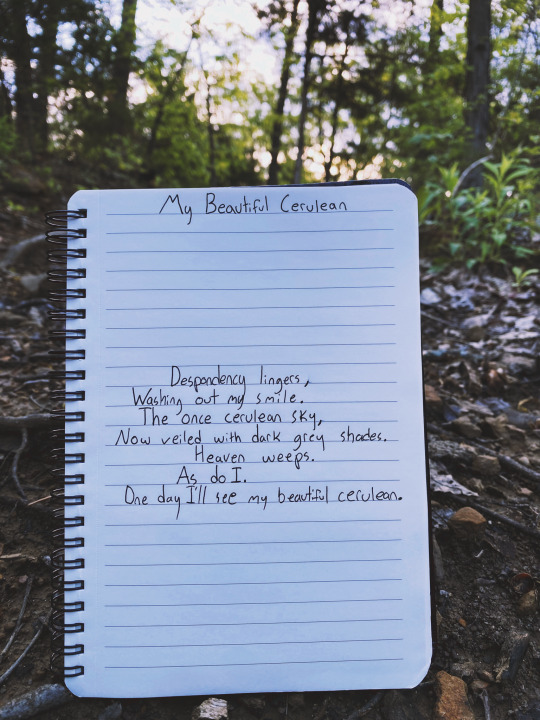 My Beautiful Cerulean
Despondency lingers,
Washing out my smile.
The once cerulean sky,
Now veiled with dark grey shades.
Heaven weeps.
As do I.
One day I'll see my beautiful cerulean.